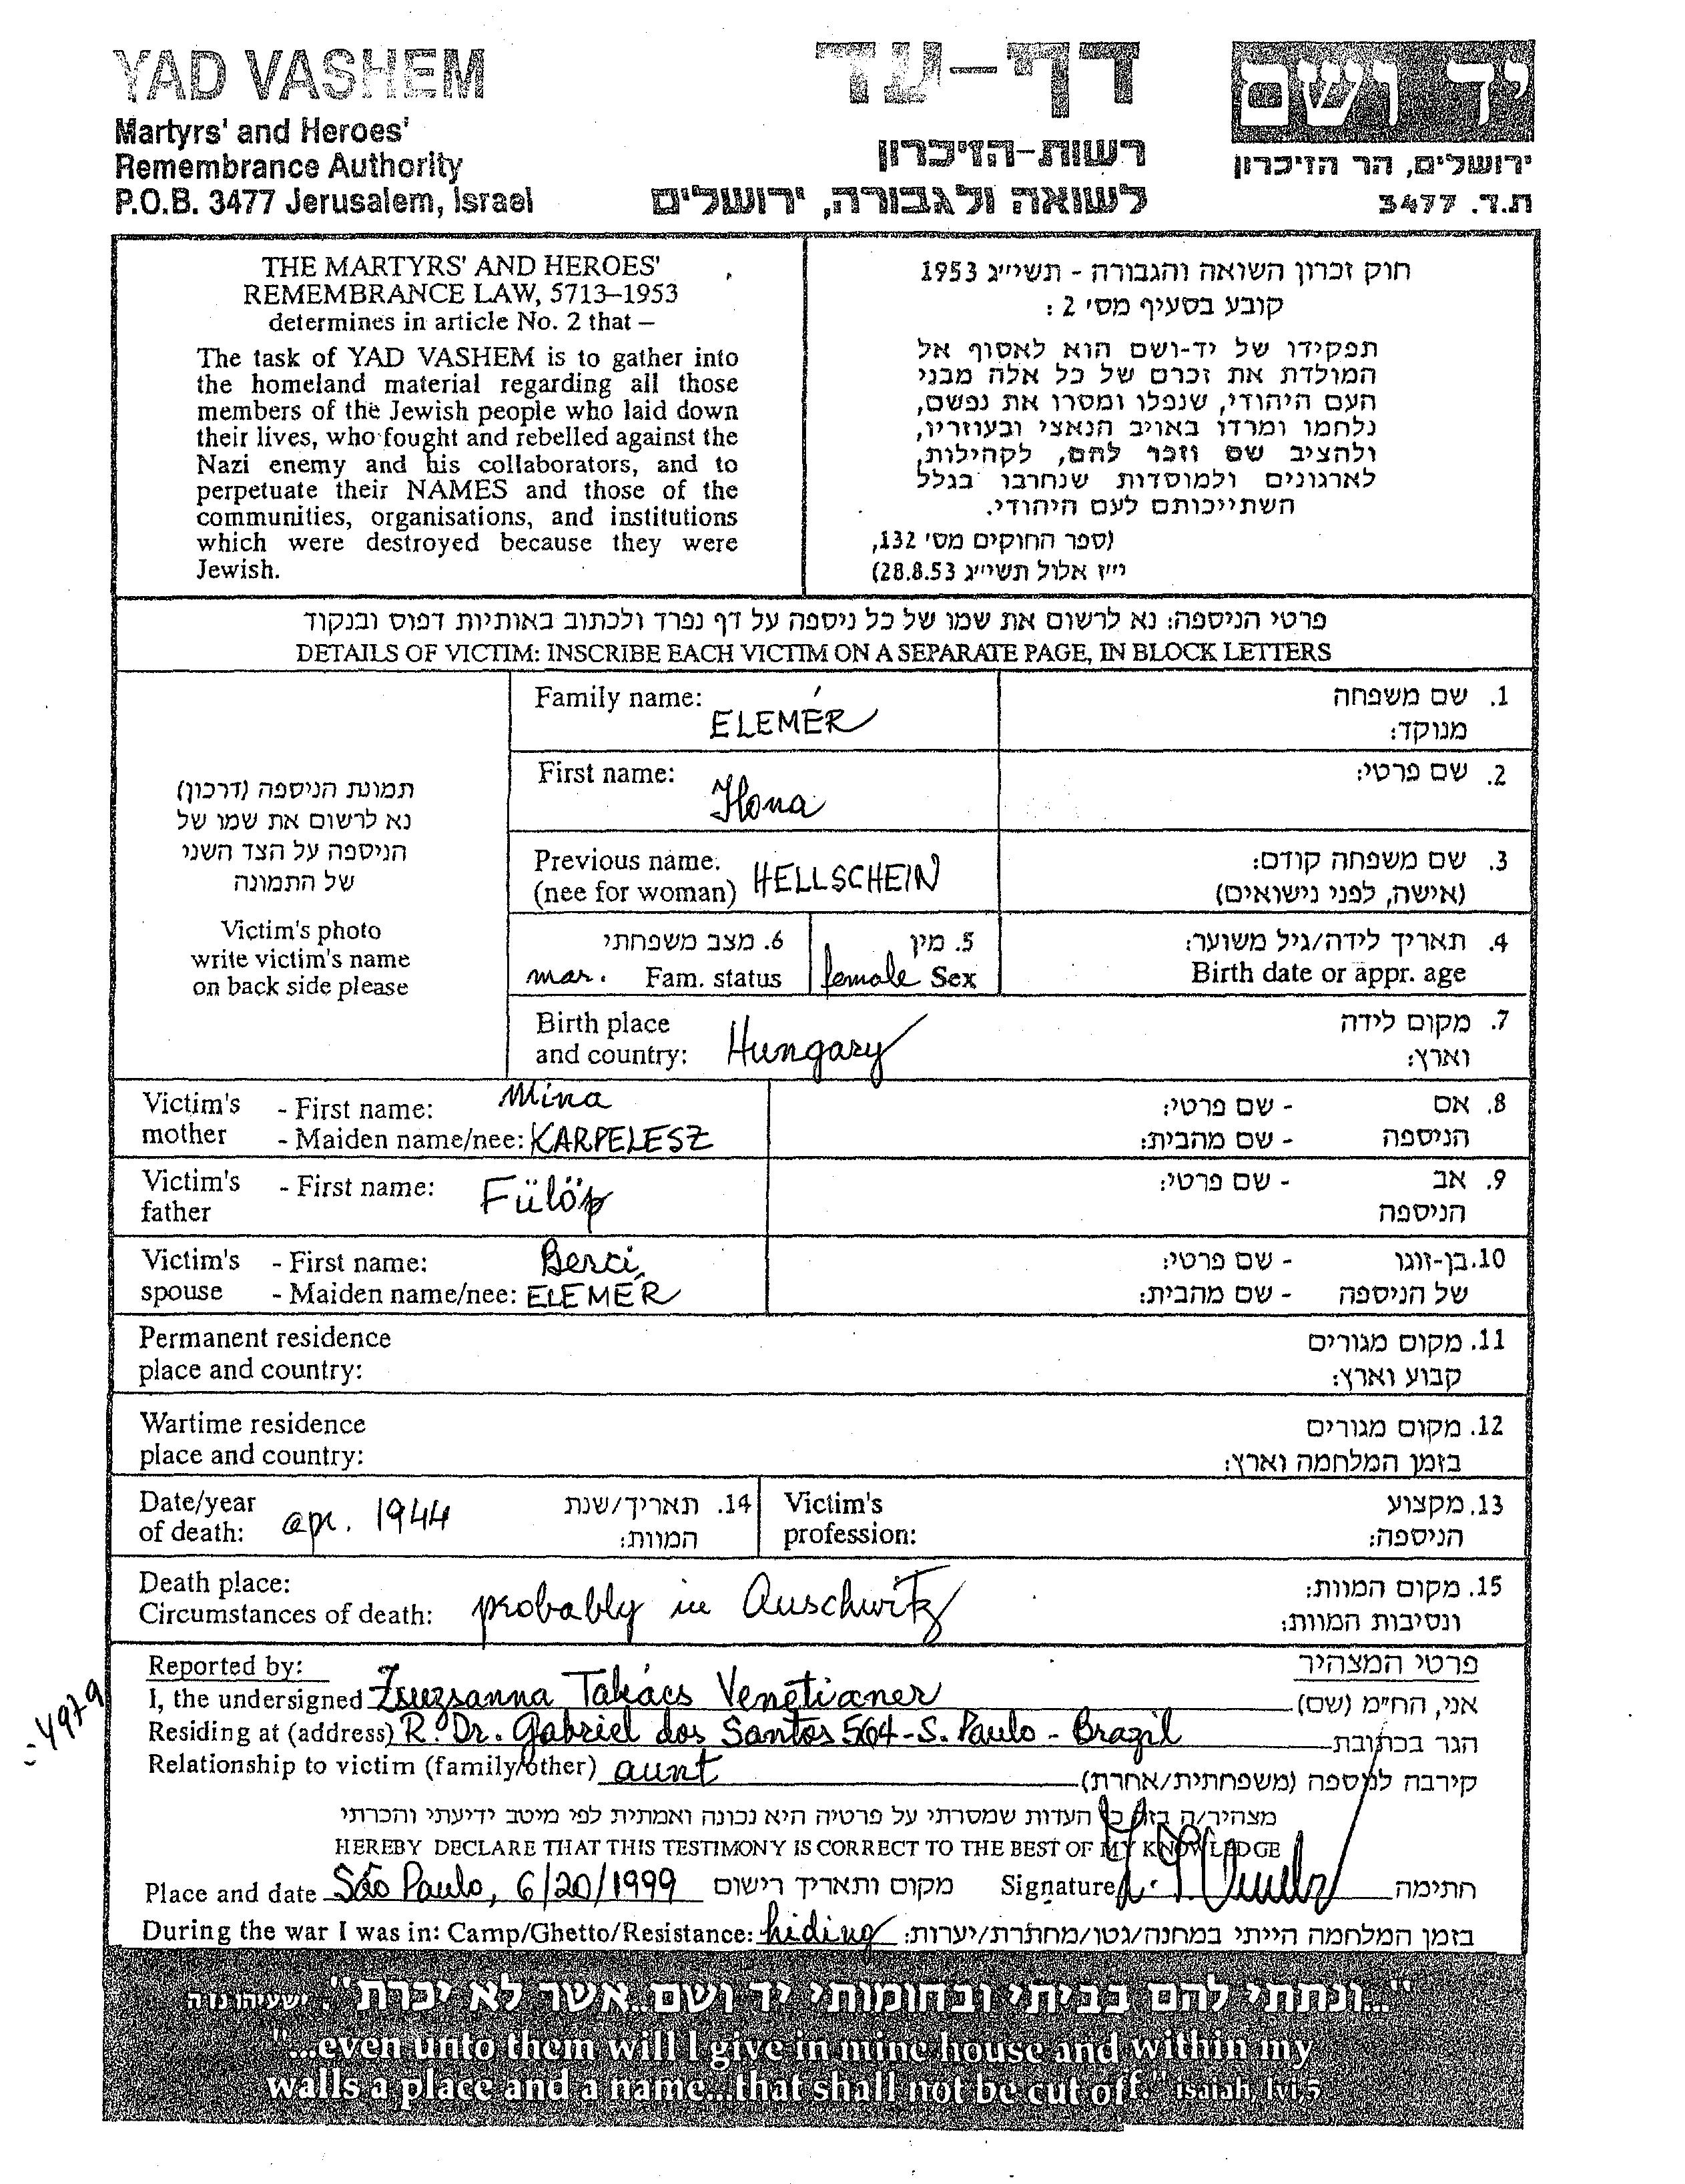 YAD VASHEM
Martyrs' and Heroes'
Remembrance Authority
P.O.B. 3477 Jerusalem, Israel
דף-עד
רשות-הזיכרון
לשואה ולגבורה, ירושלים
יד ושם
ירושלים, הר הזיכרון
ת.ד. 3477
THE MARTYRS' AND HEROES'
REMEMBRANCE LAW, 5713–1953
determines in article No. 2 that –
The task of YAD VASHEM is to gather into
the homeland material regarding all those
members of the Jewish people who laid down
their lives, who fought and rebelled against the
Nazi enemy and his collaborators, and to
perpetuate their NAMES and those of the
communities, organisations, and institutions
which were destroyed because they were
Jewish.
חוק זכרון השואה והגבורה - תשי״ג 1953
קובע בסעיף מס׳ 2 :
תפקידו של יד-ושם הוא לאסוף אל
המולדת את זכרם של כל אלה מבני
העם היהודי, שנפלו ומסרו את נפשם,
נלחמו ומרדו באויב הנאצי ובעוזריו,
ולהציב שם וזכר להם, לקהילות,
לארגונים ולמוסדות שנחרבו בגלל
השתייכותם לעם היהודי.
(ספר החוקים מס׳ 132,
י״ז אלול תשי״ג 28.8.53)
פרטי הניספה: נא לרשום את שמו של כל ניספה על דף נפרד ולכתוב באותיות דפוס ובנקוד
DETAILS OF VICTIM: INSCRIBE EACH VICTIM ON A SEPARATE PAGE, IN BLOCK LETTERS
תמונת הניספה (דרכון)
נא לרשום את שמו של
הניספה על הצד השני
של התמונה
Victim's photo
write victim's name
on back side please
Family name: ELEMÉR 1. שם משפחה
מנוקד:
First name: Ilona 2. שם פרטי:
Previous name. HELLSCHEIN 3. שם משפחה קודם:
(nee for woman) (אישה, לפני נישואים)
6. מצב משפחתי 5. מין 4. תאריך לידה/גיל משוער:
mar. Fam. status female Sex Birth date or appr. age
Birth place Hungary 7. מקום לידה
and country: וארץ:
Victim's - First name: Mina - שם פרטי: 8. אם
mother - Maiden name/nee: KARPELESZ - שם מהבית: הניספה
Victim's - First name: Fülöp - שם פרטי: 9. אב
father הניספה
Victim's - First name: Berci - שם פרטי: 10. בן-זוגו
spouse - Maiden name/nee: ELEMÉR - שם מהבית: של הניספה
Permanent residence 11. מקום מגורים
place and country: קבוע וארץ:
Wartime residence 12. מקום מגורים
place and country: בזמן המלחמה וארץ:
Date/year apr. 1944 14. תאריך/שנת Victim's 13. מקצוע
of death: המוות: profession: הניספה:
Death place: 15. מקום המוות:
Circumstances of death: probably in Auschwitz ונסיבות המוות:
Reported by: פרטי המצהיר
I, the undersigned Zsuzsanna Takács Venetianer אני, הח״מ (שם)
Residing at (address) R. Dr. Gabriel dos Santos 564 - S. Paulo - Brazil הגר בכתובת
Relationship to victim (family/other) aunt קירבה לניספה (משפחתית/אחרת)
מצהיר/ה בזה כי העדות שמסרתי על פרטיה היא נכונה ואמתית לפי מיטב ידיעתי והכרתי
HEREBY DECLARE THAT THIS TESTIMONY IS CORRECT TO THE BEST OF MY KNOWLEDGE
Place and date São Paulo, 6/20/1999 מקום ותאריך רישום Signature חתימה
During the war I was in: Camp/Ghetto/Resistance: hiding בזמן המלחמה הייתי במחנה/גטו/מחתרת/יערות:
"...ונתתי להם בביתי ובחומותי יד ושם..אשר לא יכרת". ישעיהו נו ה
"...even unto them will I give in mine house and within my
walls a place and a name...that shall not be cut off." isaiah lvi,5